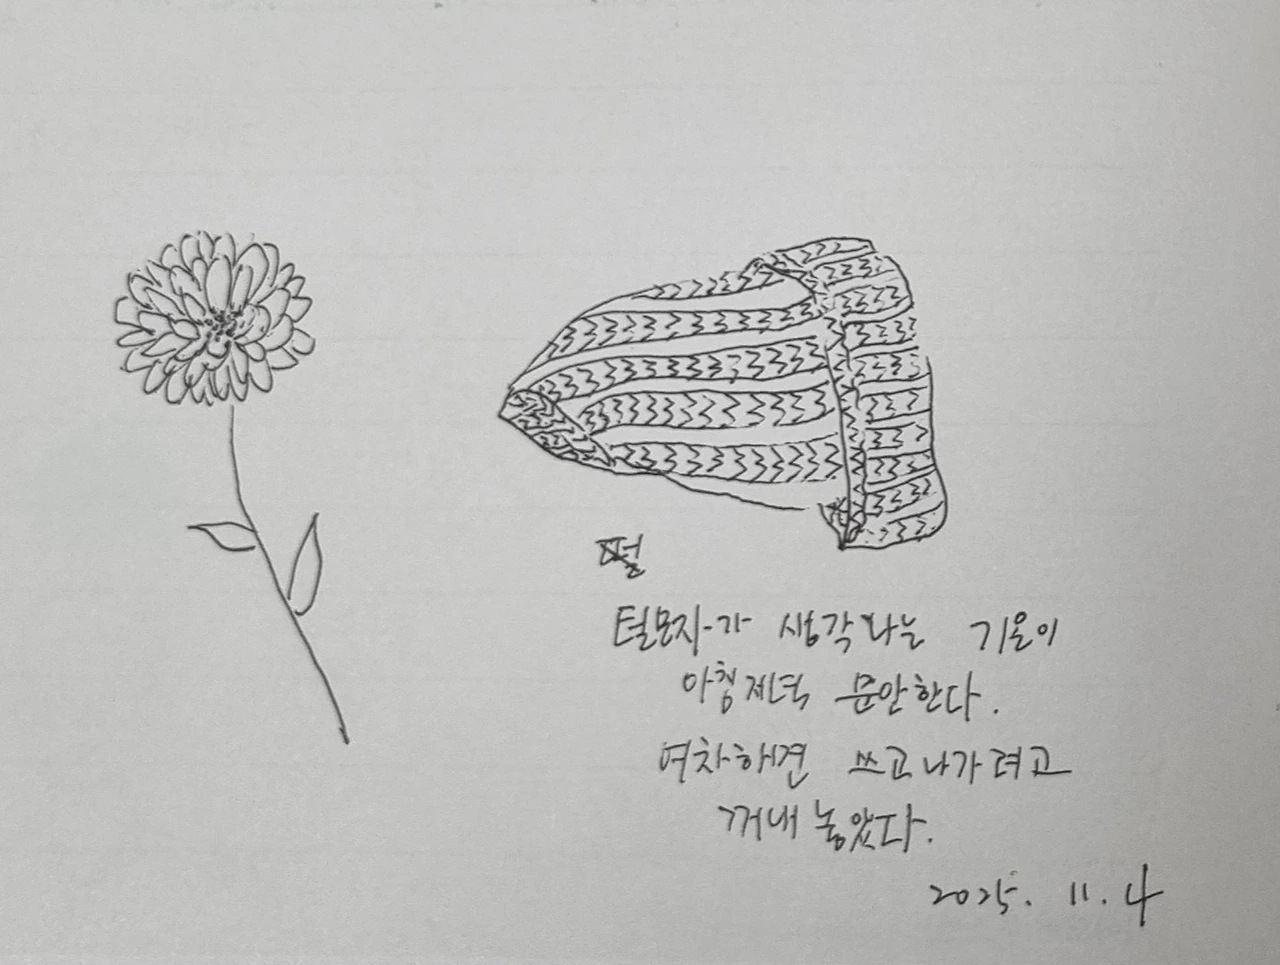 털모자가 생각나는 기온이
아침저녁 문안한다.
여차하면 쓰고 나가려고
꺼내 놓았다.
2025. 11. 4